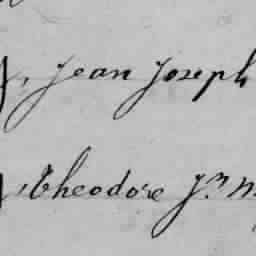 , Jean Joseph
, Theodore Jr.